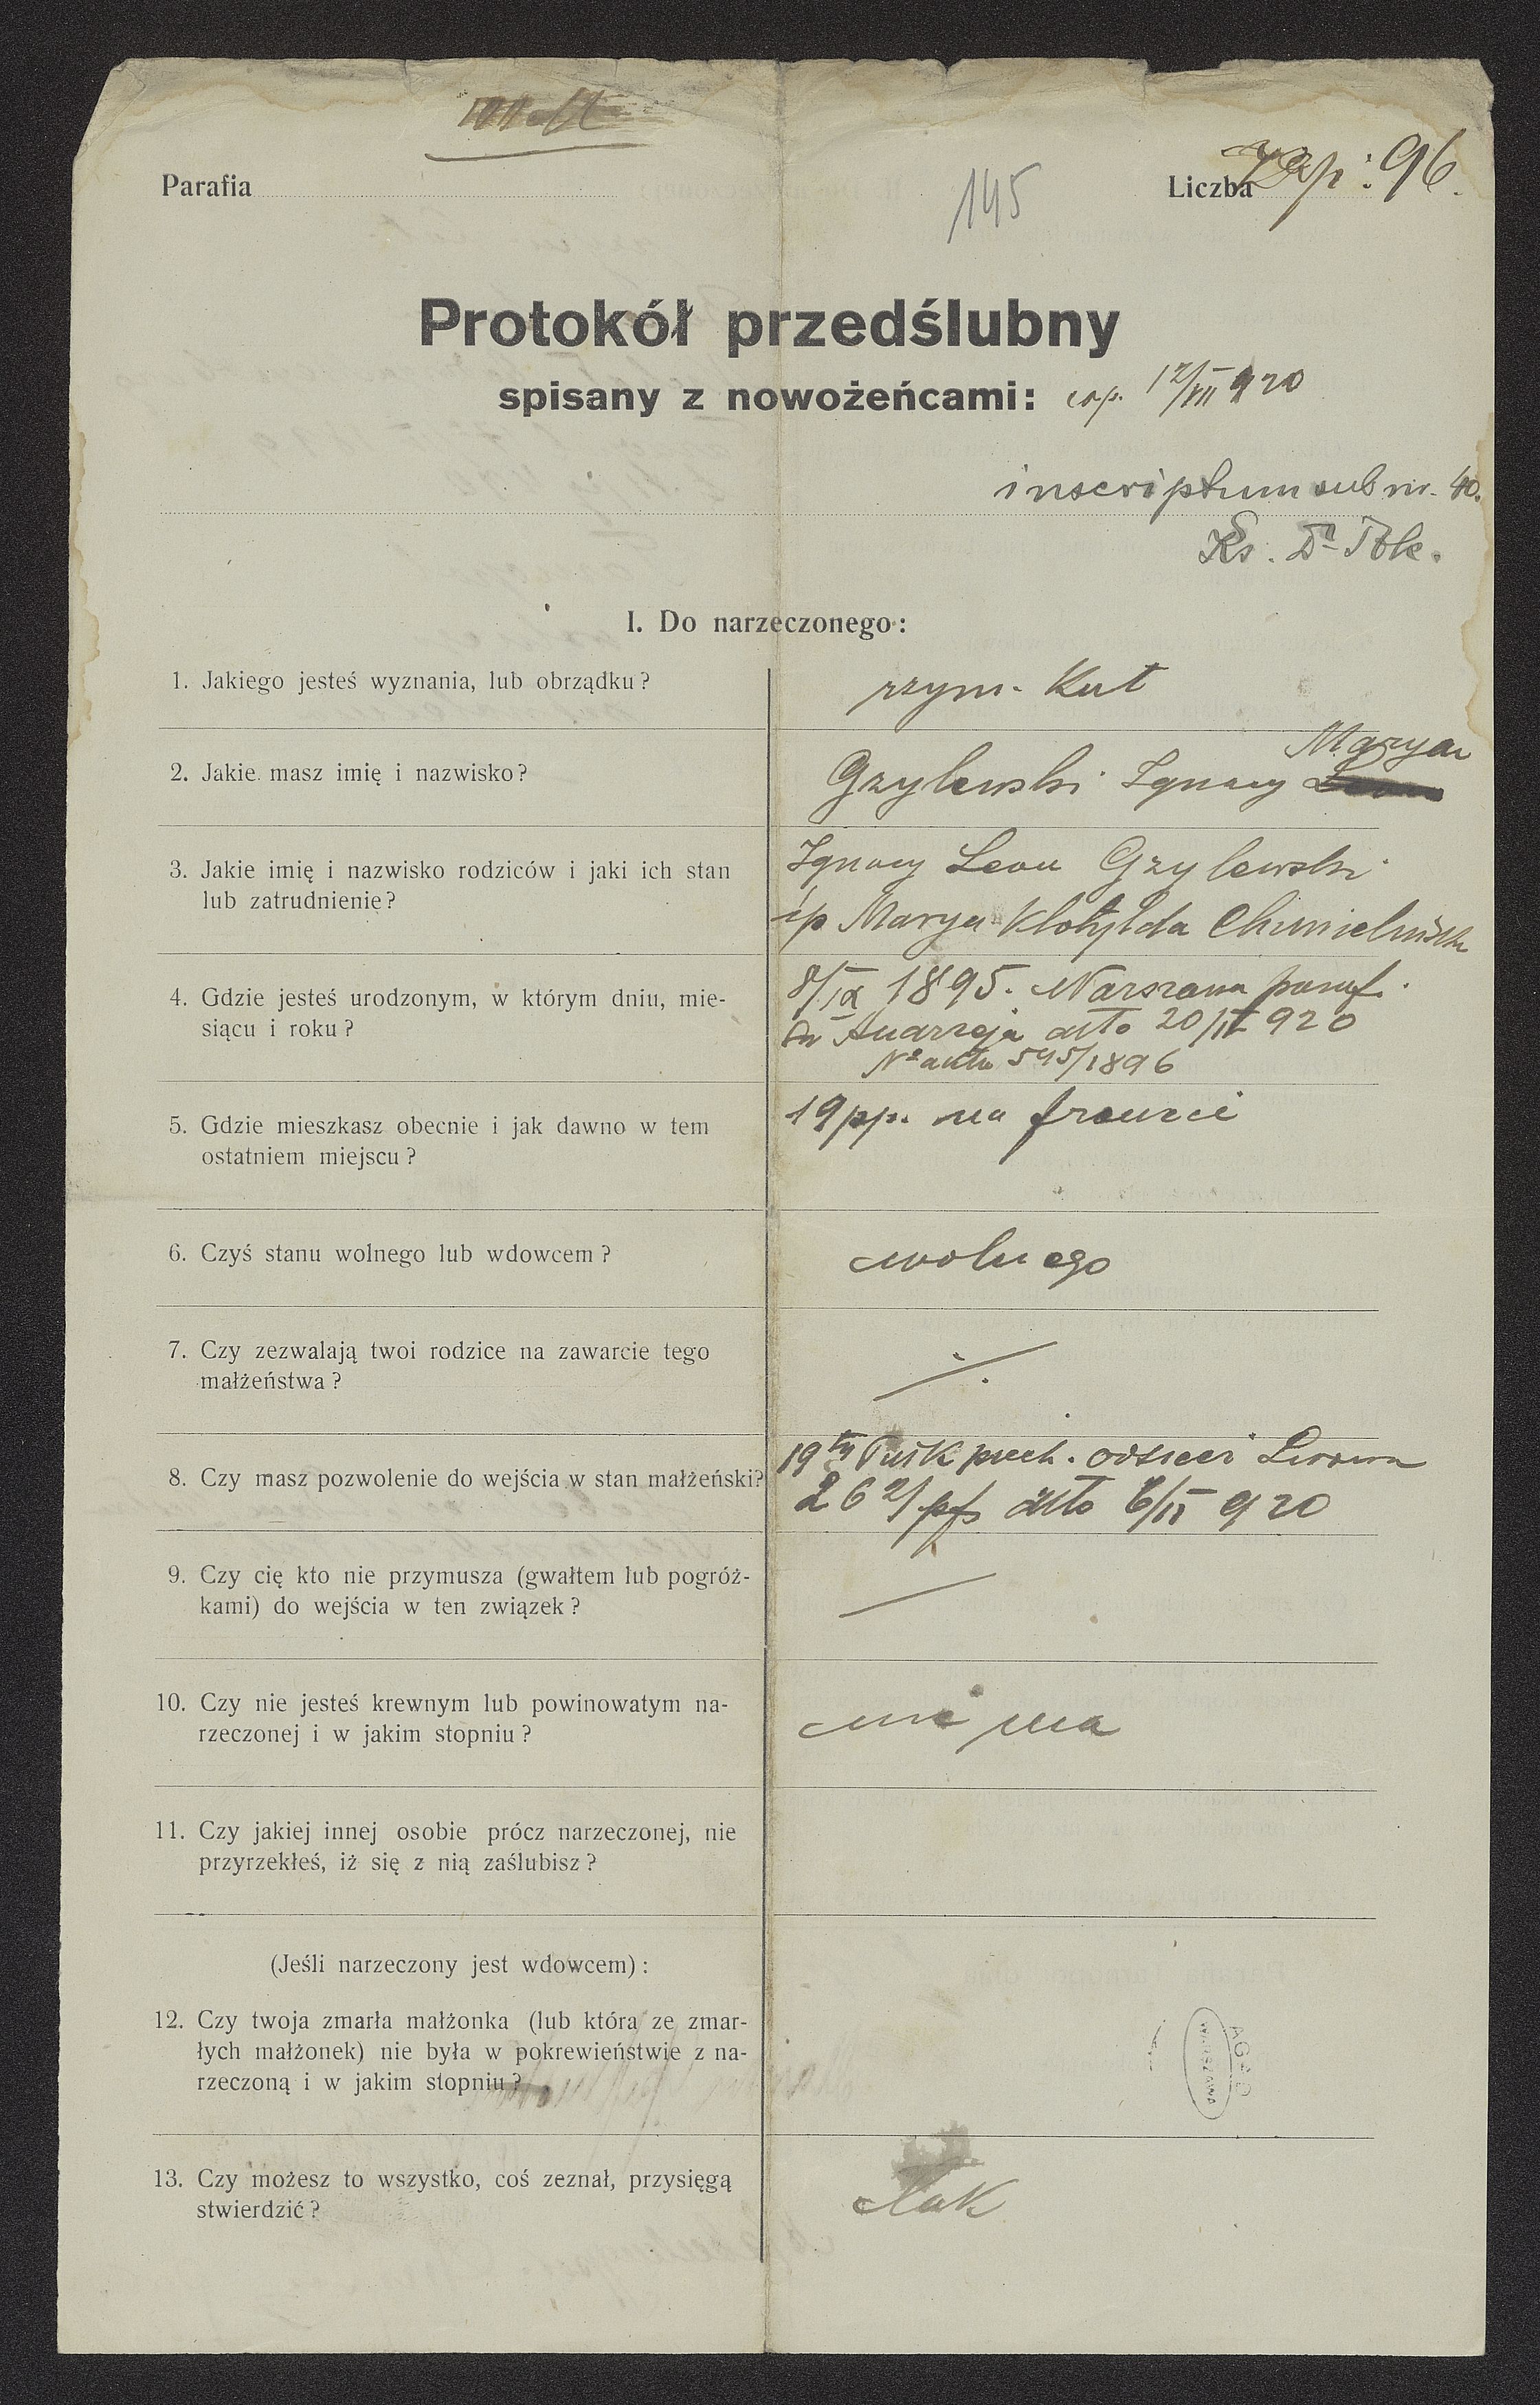 Parafia
Liczba
Zap: 96.
145
Protokół przedślubny
spisany z nowożeńcami: cop. 12/VII 920
inscriptum sub nr. 40.
Ks. Dr
I. Do narzeczonego:
1. Jakiego jesteś wyznania, lub obrządku?
rzym. Kat
2. Jakie masz imię i nazwisko?
Maryan
Grzylewski Ignacy
3. Jakie imię i nazwisko rodziców i jaki ich stan
lub zatrudnienie?
Ignacy Leon Grzylewski
śp Marya Klotylda Chmielińska
4. Gdzie jesteś urodzonym, w którym dniu, mie-
siącu i roku?
8/IX 1895. Warszawa paraf.
św Andrzeja dtto 20/II 920
No aktu 545/1896
5. Gdzie mieszkasz obecnie i jak dawno w tem
ostatniem miejscu?
19 pp. na froncie
6. Czyś stanu wolnego lub wdowcem?
wolnego
7. Czy zezwalają twoi rodzice na zawarcie tego
małżeństwa?
8. Czy masz pozwolenie do wejścia w stan małżeński?
19ty Pułk piech. odsieci Lwowa
262/pfs dtto 6/II 920
9. Czy cię kto nie przymusza (gwałtem lub pogróż-
kami) do wejścia w ten związek?
10. Czy nie jesteś krewnym lub powinowatym na-
rzeczonej i w jakim stopniu?
nie ma
11. Czy jakiej innej osobie prócz narzeczonej, nie
przyrzekłeś, iż się z nią zaślubisz?
(Jeśli narzeczony jest wdowcem):
12. Czy twoja zmarła małżonka (lub która ze zmar-
łych małżonek) nie była w pokrewieństwie z na-
rzeczoną i w jakim stopniu?
AGAD
WARSZAWA
13. Czy możesz to wszystko, coś zeznał, przysięgą
stwierdzić?
Tak